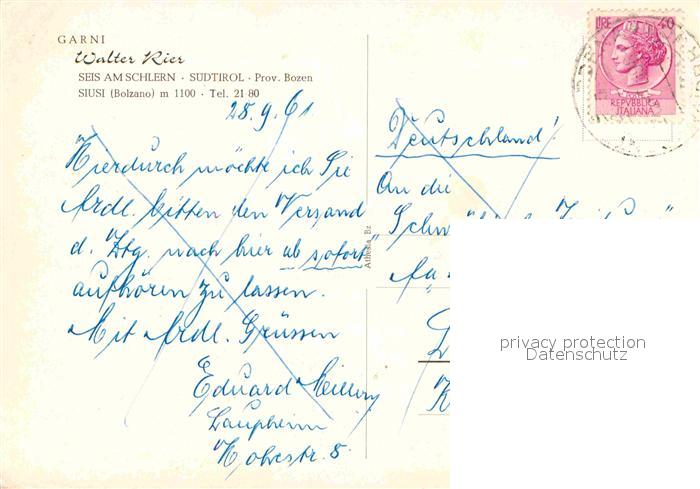 GARNI
Walter Rier
SEIS AM SCHLERN · SÜDTIROL · Prov. Bozen
SIUSI (Bolzano) m 1100 · Tel. 21 80
28.9.61
Hierdurch möchte ich Sie
frdl. bitten den Versand
d. Ztg. nach hier ab sofort
aufhören zu lassen.
Mit frdl. Grüssen
Eduard
Laupheim
8.
Athesia Bz
LIRE 40
REPVBBLICA
ITALIANA
Deutschland!
An die
privacy protection
Datenschutz